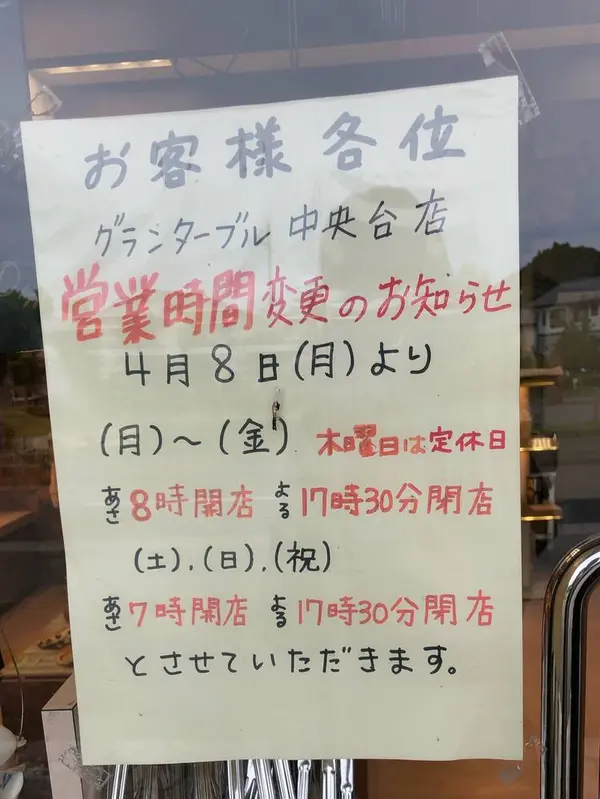 お客様各位
グランターブル 中央台店
営業時間変更のお知らせ
4月8日(月)より
(月)～(金) 木曜日は定休日
あさ8時開店 よる17時30分閉店
(土),(日),(祝)
あさ7時開店 よる17時30分閉店
とさせていただきます。